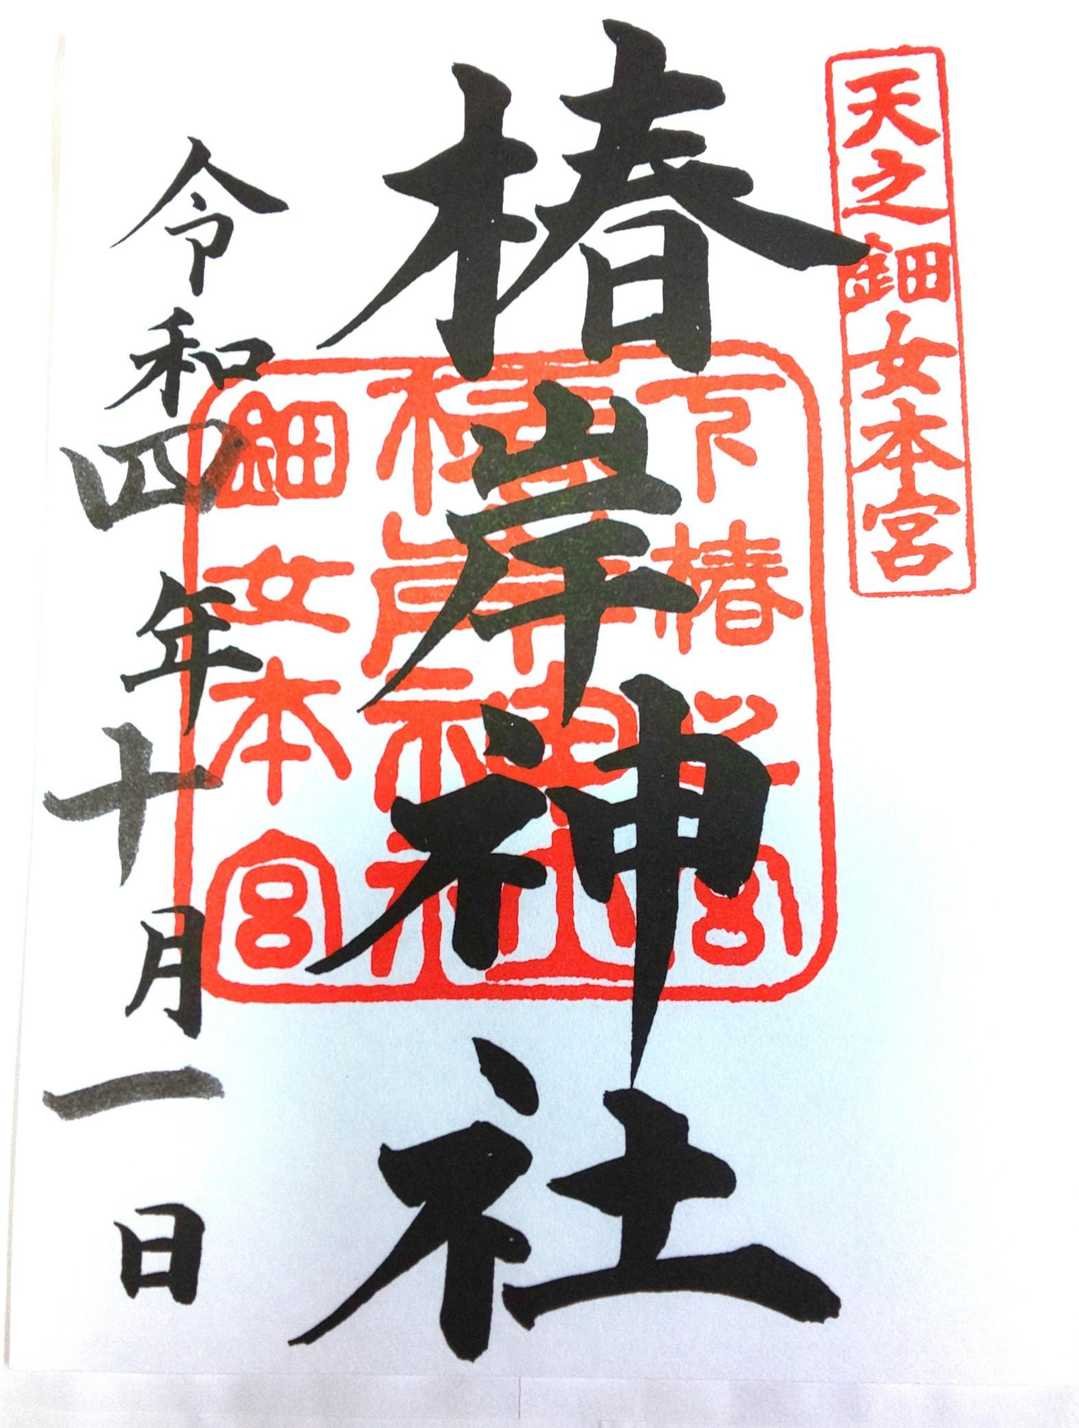 天之鈿女本宮
椿岸神社
下椿 宮
椿岸神社
鈿女本宮
令和四年十月一日